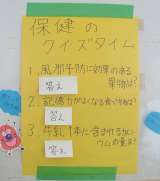 保健の
クイズタイム
1. 風邪予防に効果のある
果物は?
答え
2. 記憶力がよくなる食べ物は?
答え
3. 牛乳1本に含まれるカルシ
ウムの量は?
答え